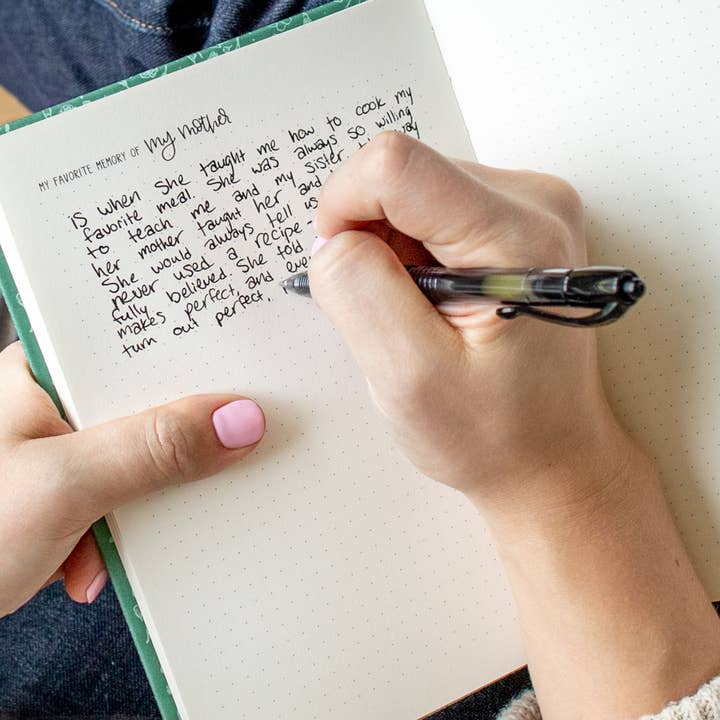 MY FAVORITE MEMORY OF my mother
is when she taught me how to cook my
favorite meal. She was always so willing
to teach me and my sister way
her mother taught her and
She would always tell us
never used a recipe -
fully believed. She told
makes perfect, and
turn out perfect.